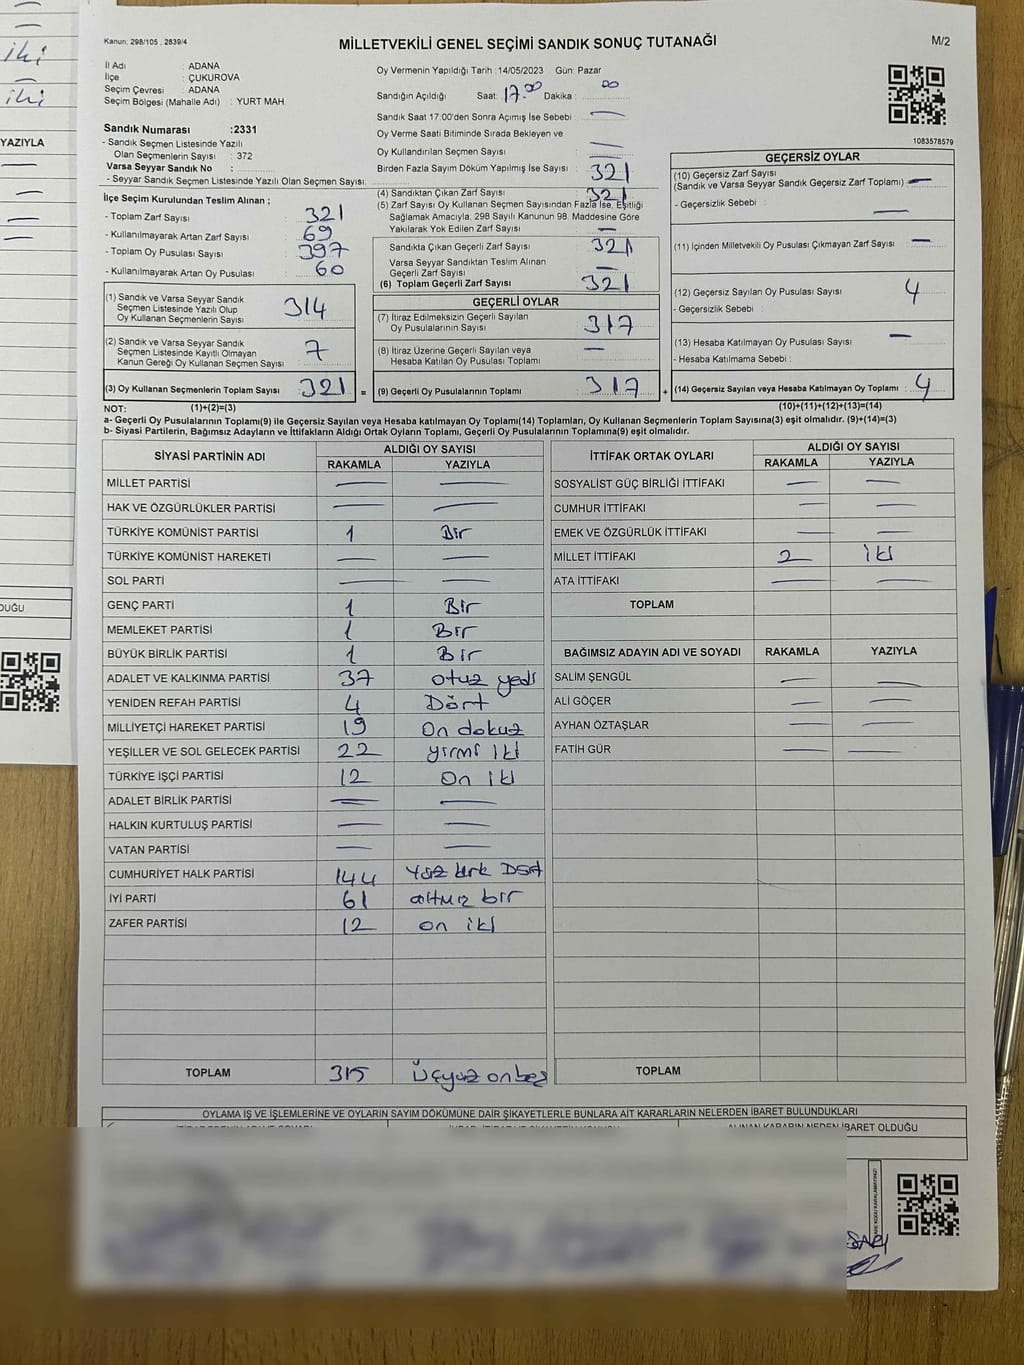 Kanun: 298/105 , 2839/4
MİLLETVEKİLİ GENEL SEÇİMİ SANDIK SONUÇ TUTANAĞI
M/2
İl Adı : ADANA
İlçe : ÇUKUROVA
Seçim Çevresi : ADANA
Seçim Bölgesi (Mahalle Adı) : YURT MAH.
Sandık Numarası :2331
- Sandık Seçmen Listesinde Yazılı
Olan Seçmenlerin Sayısı : 372
Varsa Seyyar Sandık No :
- Seyyar Sandık Seçmen Listesinde Yazılı Olan Seçmen Sayısı
İlçe Seçim Kurulundan Teslim Alınan ;
- Toplam Zarf Sayısı : 321
- Kullanılmayarak Artan Zarf Sayısı : 69
- Toplam Oy Pusulası Sayısı : 397
- Kullanılmayarak Artan Oy Pusulası : 60
(1) Sandık ve Varsa Seyyar Sandık
Seçmen Listesinde Yazılı Olup
Oy Kullanan Seçmenlerin Sayısı : 314
(2) Sandık ve Varsa Seyyar Sandık
Seçmen Listesinde Kayıtlı Olmayan
Kanun Gereği Oy Kullanan Seçmen Sayısı : 7
(3) Oy Kullanan Seçmenlerin Toplam Sayısı : 321 =
Oy Vermenin Yapıldığı Tarih :14/05/2023 Gün: Pazar
Sandığın Açıldığı Saat: 17.00 Dakika : 00
Sandık Saat 17:00'den Sonra Açımış İse Sebebi : —
Oy Verme Saati Bitiminde Sırada Bekleyen ve
Oy Kullandırılan Seçmen Sayısı : —
Birden Fazla Sayım Döküm Yapılmış İse Sayısı : 321
(4) Sandıktan Çıkan Zarf Sayısı : 321
(5) Zarf Sayısı Oy Kullanan Seçmen Sayısından Fazla İse, Eşitliği
Sağlamak Amacıyla, 298 Sayılı Kanunun 98. Maddesine Göre
Yakılarak Yok Edilen Zarf Sayısı : —
Sandıkta Çıkan Geçerli Zarf Sayısı : 321
Varsa Seyyar Sandıktan Teslim Alınan
Geçerli Zarf Sayısı : —
(6) Toplam Geçerli Zarf Sayısı : 321
GEÇERLİ OYLAR
(7) İtiraz Edilmeksizin Geçerli Sayılan
Oy Pusulalarının Sayısı : 317
(8) İtiraz Üzerine Geçerli Sayılan veya
Hesaba Katılan Oy Pusulası Toplamı : —
(9) Geçerli Oy Pusulalarının Toplamı : 317 +
1083578579
GEÇERSİZ OYLAR
(10) Geçersiz Zarf Sayısı
(Sandık ve Varsa Seyyar Sandık Geçersiz Zarf Toplamı) : —
- Geçersizlik Sebebi : —
(11) İçinden Milletvekili Oy Pusulası Çıkmayan Zarf Sayısı : —
(12) Geçersiz Sayılan Oy Pusulası Sayısı : 4
- Geçersizlik Sebebi :
(13) Hesaba Katılmayan Oy Pusulası Sayısı : —
- Hesaba Katılmama Sebebi :
(14) Geçersiz Sayılan veya Hesaba Katılmayan Oy Toplamı : 4
NOT: (1)+(2)=(3)
(10)+(11)+(12)+(13)=(14)
a- Geçerli Oy Pusulalarının Toplamı(9) ile Geçersiz Sayılan veya Hesaba katılmayan Oy Toplamı(14) Toplamları, Oy Kullanan Seçmenlerin Toplam Sayısına(3) eşit olmalıdır. (9)+(14)=(3)
b- Siyasi Partilerin, Bağımsız Adayların ve İttifakların Aldığı Ortak Oyların Toplamı, Geçerli Oy Pusulalarının Toplamına(9) eşit olmalıdır.
SİYASİ PARTİNİN ADI ALDIĞI OY SAYISI
RAKAMLA YAZIYLA
MİLLET PARTİSİ — —
HAK VE ÖZGÜRLÜKLER PARTİSİ — —
TÜRKİYE KOMÜNİST PARTİSİ 1 Bir
TÜRKİYE KOMÜNİST HAREKETİ — —
SOL PARTİ — —
GENÇ PARTİ 1 Bir
MEMLEKET PARTİSİ 1 Bir
BÜYÜK BİRLİK PARTİSİ 1 Bir
ADALET VE KALKINMA PARTİSİ 37 otuz yedi
YENİDEN REFAH PARTİSİ 4 Dört
MİLLİYETÇİ HAREKET PARTİSİ 19 On dokuz
YEŞİLLER VE SOL GELECEK PARTİSİ 22 yirmi iki
TÜRKİYE İŞÇİ PARTİSİ 12 On iki
ADALET BİRLİK PARTİSİ — —
HALKIN KURTULUŞ PARTİSİ — —
VATAN PARTİSİ — —
CUMHURİYET HALK PARTİSİ 144 Yüz kırk Dört
İYİ PARTİ 61 altmış bir
ZAFER PARTİSİ 12 on iki
TOPLAM 315 Üçyüz onbeş
İTTİFAK ORTAK OYLARI ALDIĞI OY SAYISI
RAKAMLA YAZIYLA
SOSYALİST GÜÇ BİRLİĞİ İTTİFAKI — —
CUMHUR İTTİFAKI — —
EMEK VE ÖZGÜRLÜK İTTİFAKI — —
MİLLET İTTİFAKI 2 iki
ATA İTTİFAKI — —
TOPLAM
BAĞIMSIZ ADAYIN ADI VE SOYADI RAKAMLA YAZIYLA
SALİM ŞENGÜL — —
ALİ GÖÇER — —
AYHAN ÖZTAŞLAR — —
FATİH GÜR — —
TOPLAM
OYLAMA İŞ VE İŞLEMLERİNE VE OYLARIN SAYIM DÖKÜMÜNE DAİR ŞİKAYETLERLE BUNLARA AİT KARARLARIN NELERDEN İBARET BULUNDUKLARI
ALINAN KARARIN NEDEN İBARET OLDUĞU
iki
iki
YAZIYLA